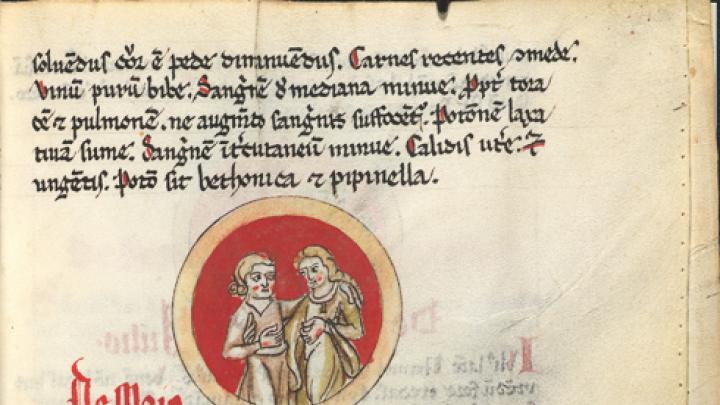 soluēdus cōr ē pede diminuēdus. Carnes recentes ꝯmede.
Vinū purū bibe. Sangnē ð mediana minue. Ppt tora
cē ⁊ pulmonē. ne augmto sangnis suffocet. Potōnē laxa
tiuā sume. Sangnē itcutaneū minue. Calidis ute. ⁊
ungētis. Potō sit bethonica ⁊ pipinella.
De Maio